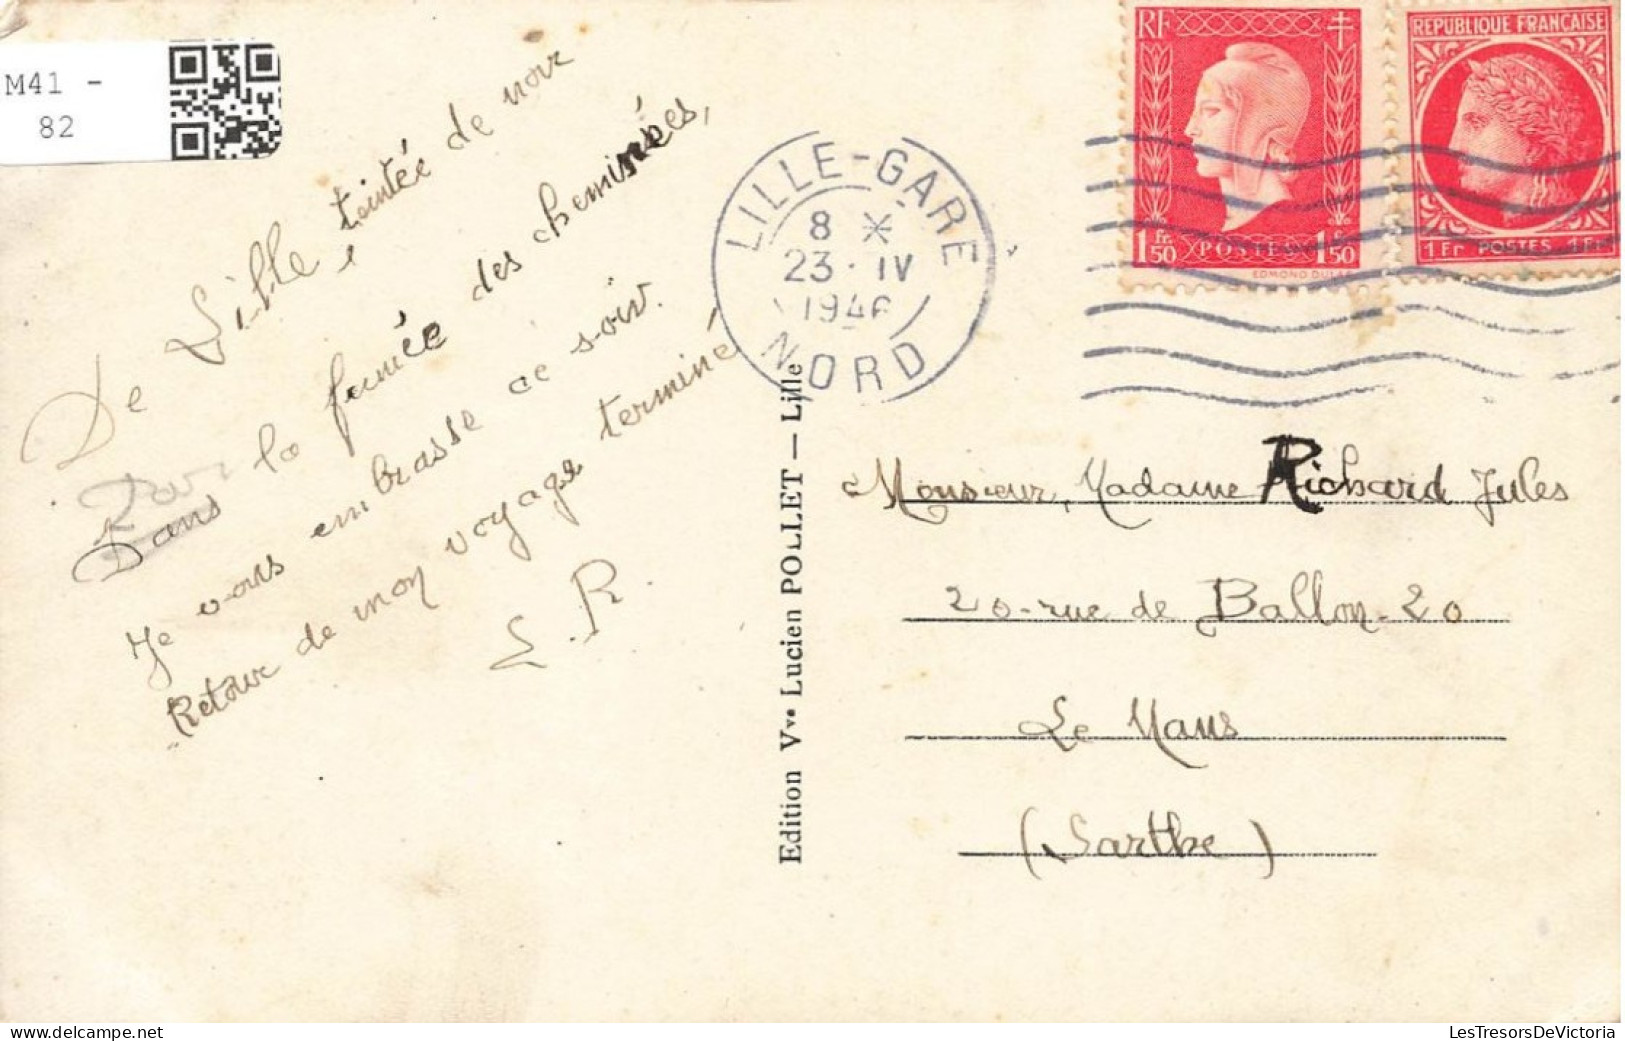 M41 -
82
De Lille, teintée de noir
Par
Dans la fumée des cheminées,
Je vous embrasse ce soir.
Retour de mon voyage terminé
L.R.
Edition Vve Lucien POLLET — Lille
LILLE-GARE
8 *
23 · IV
1946
NORD
RF
1 fr. 50 POSTES 1 f. 50
EDMOND DULAC
REPUBLIQUE FRANÇAISE
1 Fr POSTES 1 Fr
Monsieur, Madame Richard Jules
20-rue de Ballon-20
Le Mans
(Sarthe)
delcampe.net
LesTresorsDeVictoria